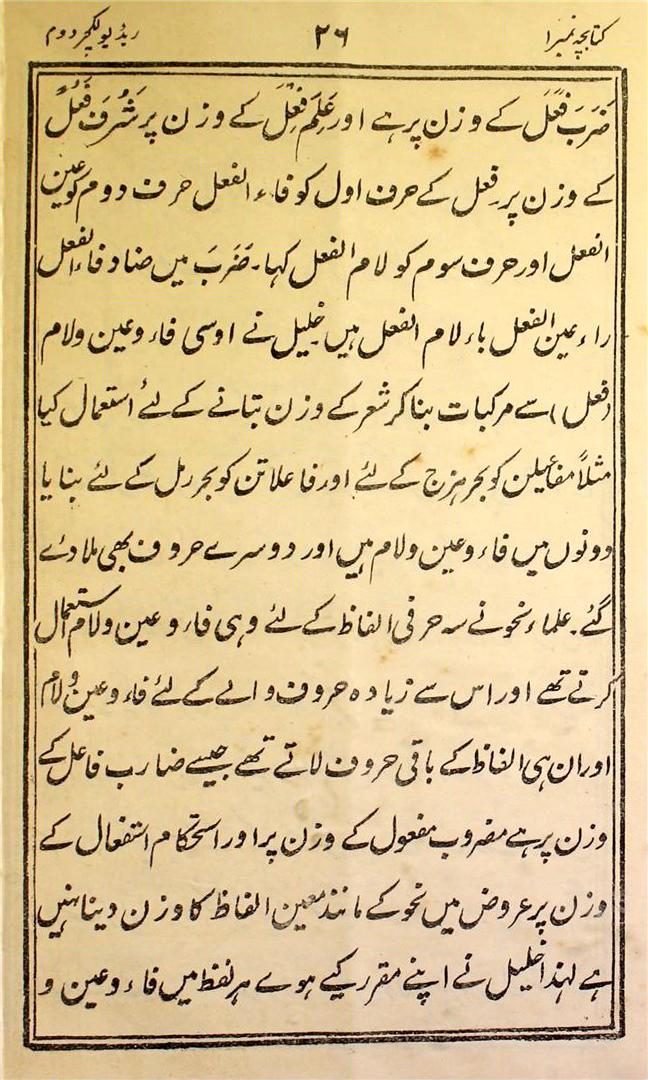 کتابچہ نمبر۱ ۲۶ ریڈیو لکچر دوم
ضَرَبَ فَعَلَ کے وزن پر ہے اور عَلِمَ فَعِلَ کے وزن پر شَرُفَ فَعُلَ
کے وزن پر۔ فعل کے حرف اول کو فاء الفعل حرف دوم کو عین
الفعل اور حرف سوم کو لام الفعل کہا۔ ضَرَبَ میں ضاد فاء الفعل
راء عین الفعل باء لام الفعل ہیں خلیل نے اوسی فاء و عین و لام
(فعل) سے مرکبات بنا کر شعر کے وزن بتانے کے لئے استعمال کیا
مثلاً مفاعیلن کو بحر ہزج کے لئے اور فاعلاتن کو بحر رمل کے لئے بنایا
دونوں میں فاء و عین و لام ہیں اور دوسرے حروف بھی ملا دئے
گئے۔ علماء نحو نے سہ حرفی الفاظ کے لئے وہی فاء و عین و لام استعمال
کرتے تھے اور اس سے زیادہ حروف والے کے لئے فاء و عین و لام
اور ان ہی الفاظ کے باقی حروف لاتے تھے جیسے ضارب فاعل کے
وزن پر ہے مضروب مفعول کے وزن پر اور استحکام استفعال کے
وزن پر عروض میں نحو کے مانند معین الفاظ کا وزن دینا نہیں
ہے لہذا خلیل نے اپنے مقرر کیے ہوے ہر لفظ میں فاء و عین و